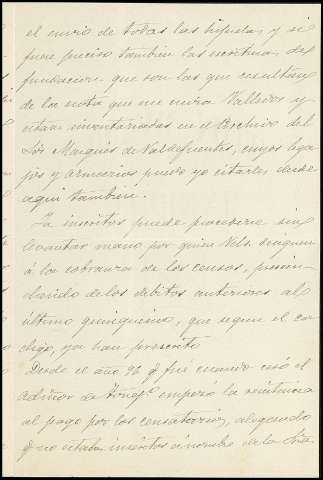 el envio de todas las hijuelas y si
fuere preciso tambien las escrituras de
fundacion que son las que resultan
de la nota que me envia Valledor y
estan inventariadas en el Archivo del
Sor Marqués de Valdefuentes, cuyos lega
jos y armarios puedo yo citarles desde
aqui tambien.
Ya inscritos puede procederse sin
levantar mano por quien Vds. designen
á la cobranza de los censos, prescin-
diendo de los debitos anteriores al
último quinquenio, que segun el co-
digo, ya han prescrito
Desde el año 96 q fué cuando cesó el
admor de empezó la resistencia
al pago por los censatarios, alegando
q no estaban inscritos á nombre de la